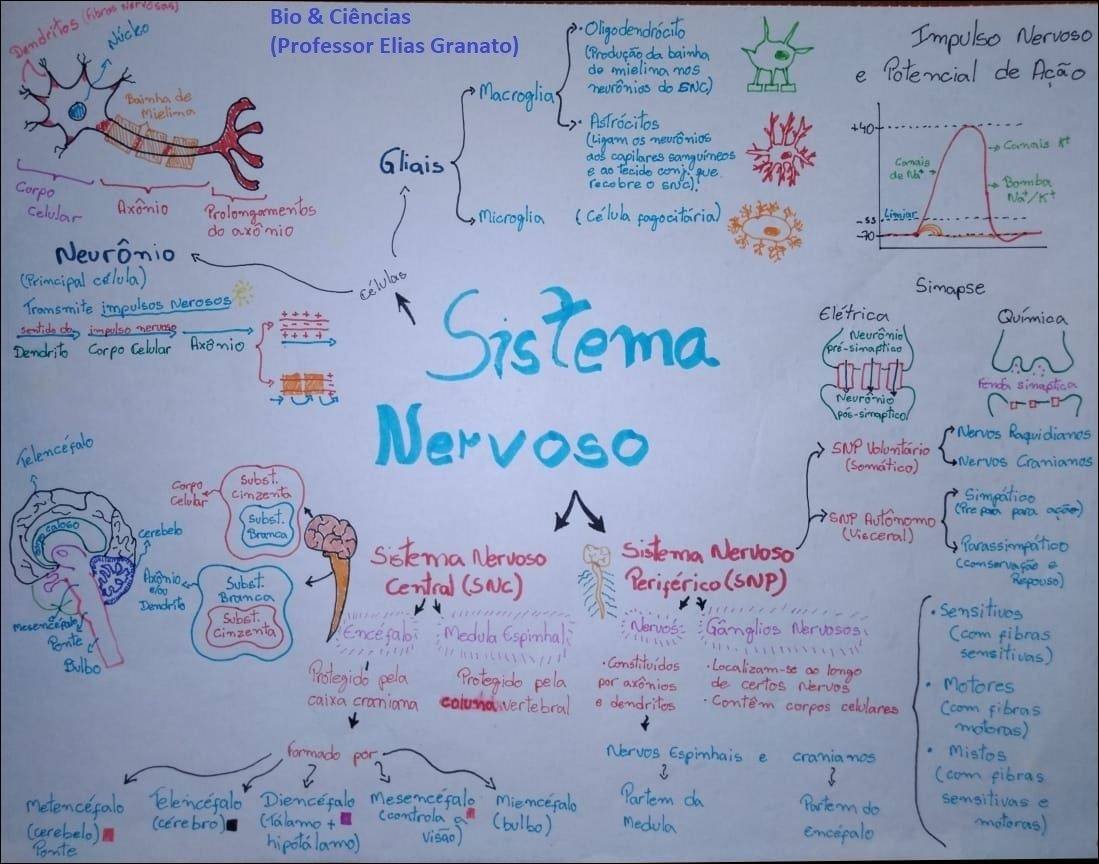 Bio & Ciências
(Professor Elias Granato)
Dendritos (fibras nervosas)
Núcleo
Bainha de
Mielina
Corpo
Celular
Axônio
Prolongamentos
do axônio
Neurônio
(Principal célula)
Transmite impulsos Nerosos
sentido do impulso nervoso
Dendrito Corpo Celular Axônio
+ + + +
- - - -
+ + + +
Células
Gliais
Macroglia
Oligodendrócito
(Produção da bainha
de mielina nos
neurônios do SNC)
Astrócitos
(Ligam os neurônios
aos capilares sanguíneos
e ao tecido conj. que
recobre o SNC).
Microglia (Célula fagocitária)
Impulso Nervoso
e Potencial de Ação
+40
-55
-70
Limiar
Canais
de Na⁺
Canais K⁺
Bomba
Na⁺/K⁺
Sinapse
Elétrica
Neurônio
pré-sináptico
Neurônio
pós-sináptico
Química
Fenda sináptica
Sistema
Nervoso
Telencéfalo
Corpo caloso
Cerebelo
Mesencéfalo
Ponte
Bulbo
Corpo
Celular
Subst.
Cinzenta
Subst.
Branca
Axônio
e/ou
Dendrito
Subst.
Branca
Subst.
Cinzenta
Sistema Nervoso
Central (SNC)
Encéfalo
Medula Espinhal
Protegido pela
caixa craniana
Protegido pela
coluna vertebral
Formado por
Metencéfalo
(cerebelo)
Ponte
Telencéfalo
(cérebro)
Diencéfalo
(Tálamo +
hipotálamo)
Mesencéfalo
(controla a
visão)
Miencéfalo
(bulbo)
Sistema Nervoso
Periférico (SNP)
SNP Voluntário
(Somático)
Nervos Raquidianos
Nervos Cranianos
SNP Autônomo
(Visceral)
Simpático
(Prepara para ação)
Parassimpático
(conservação e
Repouso)
Nervos:
Gânglios Nervosos
• Constituídos
por axônios
e dendritos
• Localizam-se ao longo
de certos Nervos
• Contêm corpos celulares
Nervos Espinhais e cranianos
Partem da
Medula
Partem do
encéfalo
• Sensitivos
(com fibras
sensitivas)
• Motores
(com fibras
motoras)
• Mistos
(com fibras
sensitivas e
motoras)